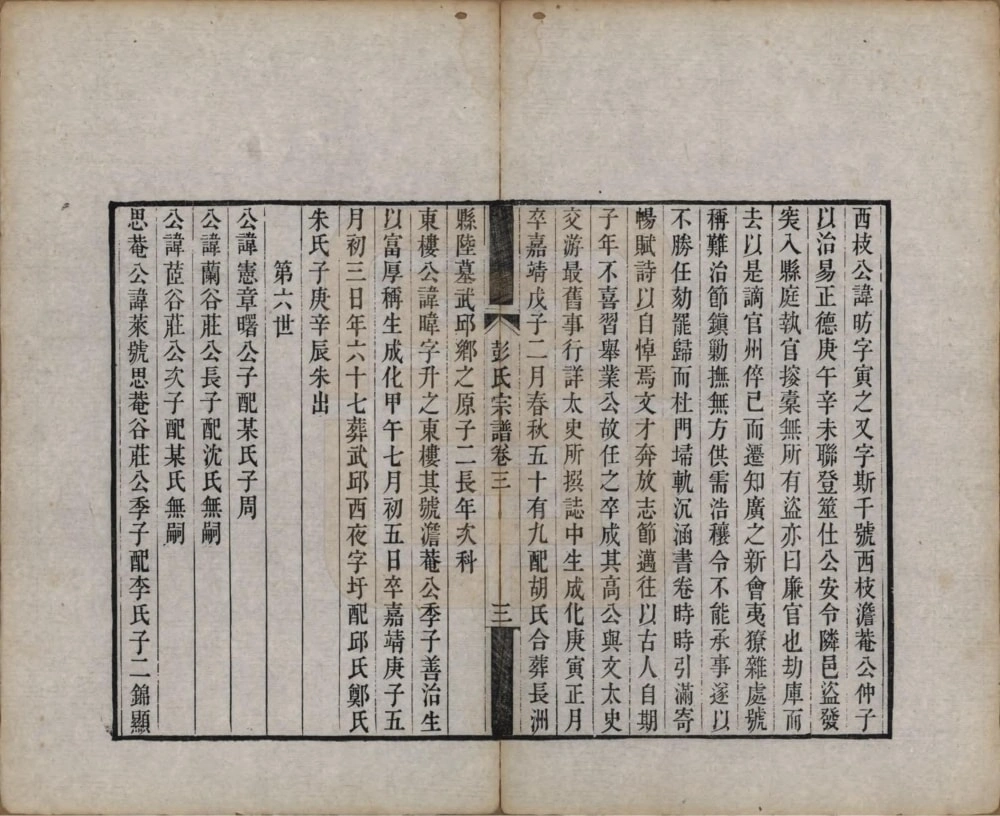 西枝公諱昉字寅之又字斯千號西枝澹菴公仲子
以治易正德庚午辛未聯登筮仕公安令隣邑盜發
突入縣庭執官搜橐無所有盜亦曰廉官也劫庫而
去以是謫官州倅已而遷知廣之新會夷獠雜處號
稱難治節鎮勦撫無方供需浩穰令不能承事遂以
不勝任劾罷歸而杜門埽軌沉涵書卷時時引滿寄
暢賦詩以自悼焉文才奔放志節邁往以古人自期
子年不喜習舉業公故任之卒成其高公與文太史
交游最舊事行詳太史所撰誌中生成化庚寅正月
卒嘉靖戊子二月春秋五十有九配胡氏合葬長洲
彭氏宗譜卷三
三
縣陸墓武邱鄉之原子二長年次科
東樓公諱暐字升之東樓其號澹菴公季子善治生
以富厚稱生成化甲午七月初五日卒嘉靖庚子五
月初三日年六十七葬武邱西夜字圩配邱氏鄭氏
朱氏子庚辛辰朱出
第六世
公諱憲章曙公子配某氏子周
公諱蘭谷莊公長子配沈氏無嗣
公諱茝谷莊公次子配某氏無嗣
思菴公諱萊號思菴谷莊公季子配李氏子二錦顯